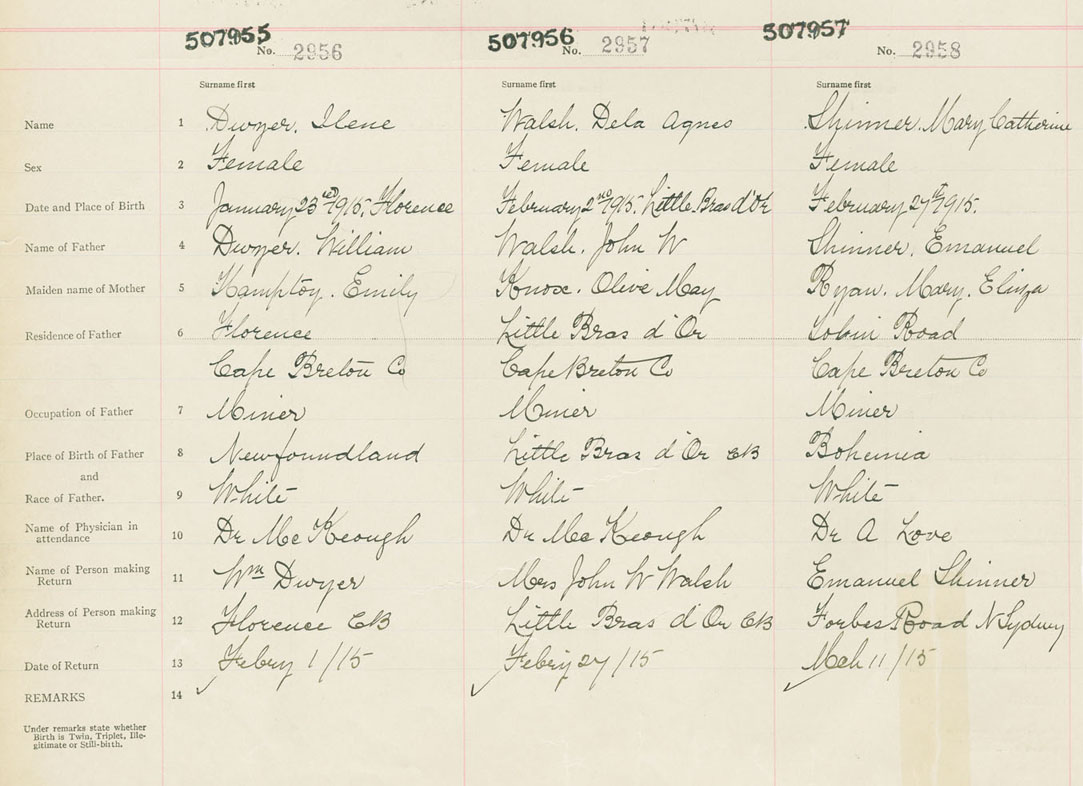 507955 No. 2956 507956 No. 2957 507957 No. 2958
Surname first Surname first Surname first
Name 1 Dwyer. Ilene Walsh. Dela Agnes Skinner. Mary Catherine
Sex 2 Female Female Female
Date and Place of Birth 3 January 23rd 1915. Florence February 2nd 1915. Little Bras d'Or February 27th 1915.
Name of Father 4 Dwyer. William Walsh. John W Skinner. Emanuel
Maiden name of Mother 5 Emily Knox. Olive May Ryan. Mary. Eliza
Residence of Father 6 Florence Little Bras d'Or Road
Cape Breton Co Cape Breton Co Cape Breton Co
Occupation of Father 7 Miner Miner Miner
Place of Birth of Father 8 Newfoundland Little Bras d'Or CB Bohemia
and
Race of Father. 9 White White White
Name of Physician in
attendance 10 Dr McKeough Dr McKeough Dr A Love
Name of Person making
Return 11 Wm Dwyer Mrs John W Walsh Emanuel Skinner
Address of Person making
Return 12 Florence CB Little Bras d'Or CB Forbes Road N Sydney
Date of Return 13 Febry 1/15 Febry 27/15 Mch 11/15
REMARKS 14
Under remarks state whether
Birth is Twin, Triplet, Ille-
gitimate or Still-birth.